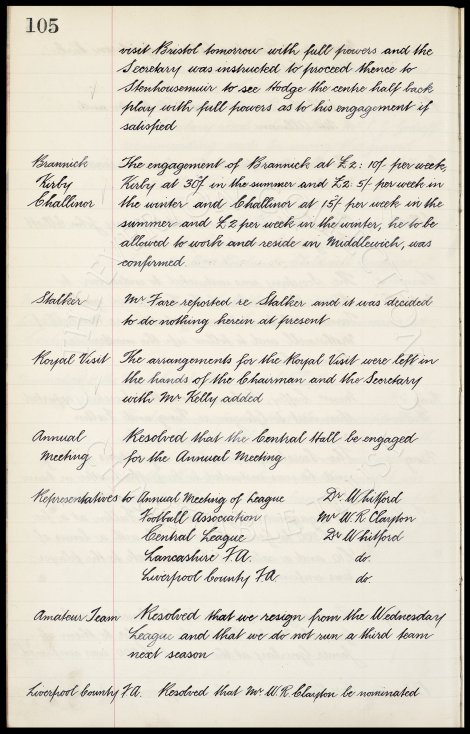 105
visit Bristol tomorrow with full powers and the
Secretary was instructed to proceed thence to
Stenhousemuir to see Hodge the centre half back
play with full powers as to his engagement if
satisfied
Brannick The engagement of Brannick at £2: 10/- per week,
Kirby Kirby at 30/- in the summer and £2: 5/- per week in
Challinor the winter and Challinor at 15/- per week in the
summer and £2 per week in the winter, he to be
allowed to work and reside in Middlewich, was
confirmed.
Stalker Mr Fare reported re Stalker and it was decided
to do nothing herein at present
Royal Visit The arrangements for the Royal Visit were left in
the hands of the Chairman and the Secretary
with Mr Kelly added
Annual Resolved that the Central Hall be engaged
Meeting for the Annual Meeting
Representatives to Annual Meeting of League Dr Whitford
Football Association Mr W. R. Clayton
Central League Dr Whitford
Lancashire F.A. do.
Liverpool County F.A. do.
Amateur Team Resolved that we resign from the Wednesday
League and that we do not run a third team
next season
Liverpool County F.A. Resolved that Mr W. R. Clayton be nominated